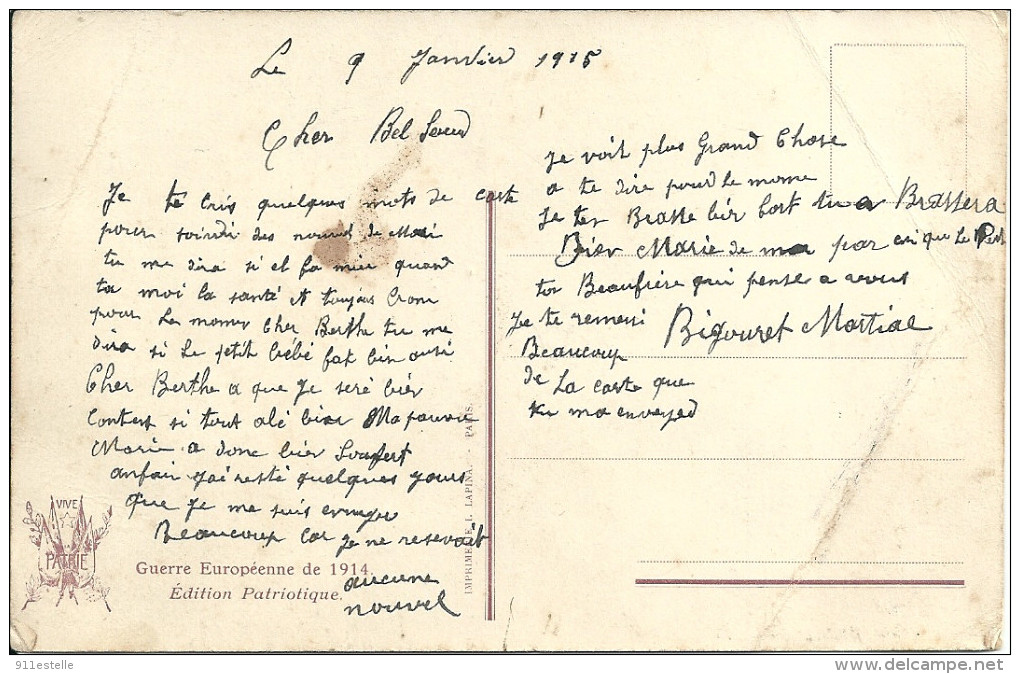 Le 9 Janvier 1915
Cher Bel Seurd
Je te cris quelques mots de carte
pour des nouvel de Mari
tu me dira si el fa mieu quand
ta moi la santé et toujour
pour Le momen Cher Berthe tu me
dira si Le petit bébé fat bien ausi
Cher Berthe a que Je seré bien
Content si tout alé bien Ma pauvre
Marie a donc bien Soufert
anfain j'ai resté quelques jours
que Je me suis
Beaucoup Car Je ne resevoit
aucune
nouvel
Je voit plus Grand Chose
a te dire pourd le mome
Je ten Brasse bien fort tu a Brassera
Bien Marie de ma par ausi que le Petit
ton Beaufrère qui pense a vous
Je te remersi
Bigouret Martial
Beaucoup
de La carte que
tu ma envoyed
VIVE
LA
PATRIE
Guerre Européenne de 1914.
Édition Patriotique.
IMPRIMERIE I. LAPINA. - PARIS.
911estelle
www.delcampe.net